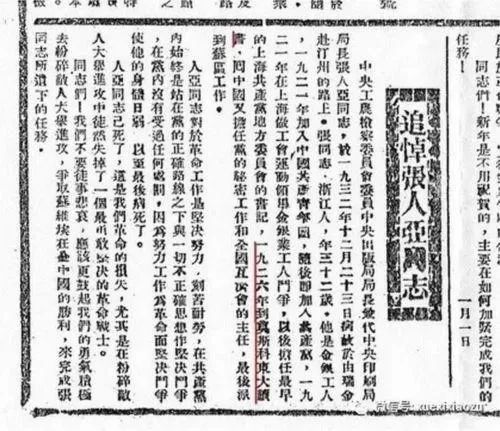 同志們！新年是不用祝賀的，主要在如何加緊完成我們的
任務！
一月一日
追悼張人亞同志
中央工農檢察委員會委員中央出版局局長兼代中央印刷局
局長張人亞同志，於一九三二年十二月二十三日病故於由瑞金
赴汀州的路上。張同志，浙江人，年三十二歲。他是金銀工人
，一九二二年加入中國共產青年團，隨後即加入共產黨，一九
二一年在上海做工會運動領導金銀業工人鬥爭，以後擔任最早
的上海共產黨地方委員會的書記，一九二六年到莫斯科東大讀
書，回中國又擔任黨的秘密工作和全國互濟會的主任，最後派
到蘇區工作。
人亞同志對於革命工作是堅決努力，刻苦耐勞，在共產黨
內始終是站在黨的正確路線之下與一切不正確思想作堅決鬥爭
，在黨內沒有受過任何處罰，因為努力工作為革命而堅決鬥爭
使他的身體日弱，以至最後病死了。
人亞同志已死了，這是我們革命的損失，尤其是在粉碎敵
人大舉進攻中徒然失掉了一個最勇敢堅決的革命戰士。
同志們！我們不要徒事悲哀，應該更鼓起我們的勇氣積極
去粉碎敵人大舉進攻，爭取蘇維埃在全中國的勝利，來完成張
同志所遺下的任務。
微信号: xuexixiaozu